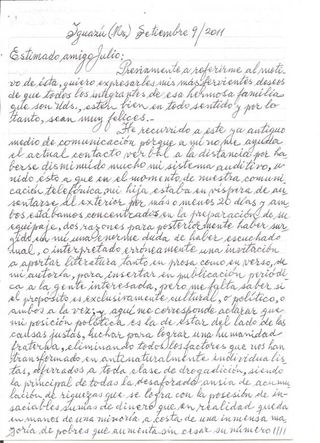 Iguazú (Mns.) Setiembre 9/2011
Estimado amigo Julio:
Previamente a referirme al moti-
vo de ésta, quiero expresarles mis más fervientes deseos
de que todos los integrantes de esa hermosa familia
que son Uds., estén bien en todo sentido y por lo
tanto, sean muy felices.-
He recurrido a este ya antiguo
medio de comunicación porque a mí no me ayuda
el actual contacto verbal a la distancia por ha-
berse disminuido mucho mi sistema auditivo, u-
nido ésto a que en el momento de nuestra comuni-
cación telefónica, mi hija estaba en víspera de au-
sentarse al exterior por más o menos 20 días y am-
bos estábamos concentrados en la preparación de su
equipaje, dos razones para posteriormente haber sur-
gido en mi una enorme duda de haber escuchado
mal, o interpretado erróneamente una invitación
a aportar literatura tanto en prosa como en verso, de
mi autoría, para insertar en publicación periódi-
ca a la gente interesada, pero me falta saber si
el propósito es exclusivamente cultural, o político, o
ambos a la vez; y aquí me corresponde aclarar que
mi posición política es la de estar del lado de las
causas justas, luchar para lograr una humanidad
fraterna, eliminando todos los factores que nos han
transformado en antinaturalmente individualis-
tas, aferrados a toda clase de drogadicción, siendo
la principal de todas la desaforada ansia de acumu-
lación de riquezas que se logra con la posesión de in-
saciables sumas de dinero que, en realidad queda
en manos de una minoría a costa de una inmensa ma-
yoría de pobres que aumenta sin cesar su número!!!!